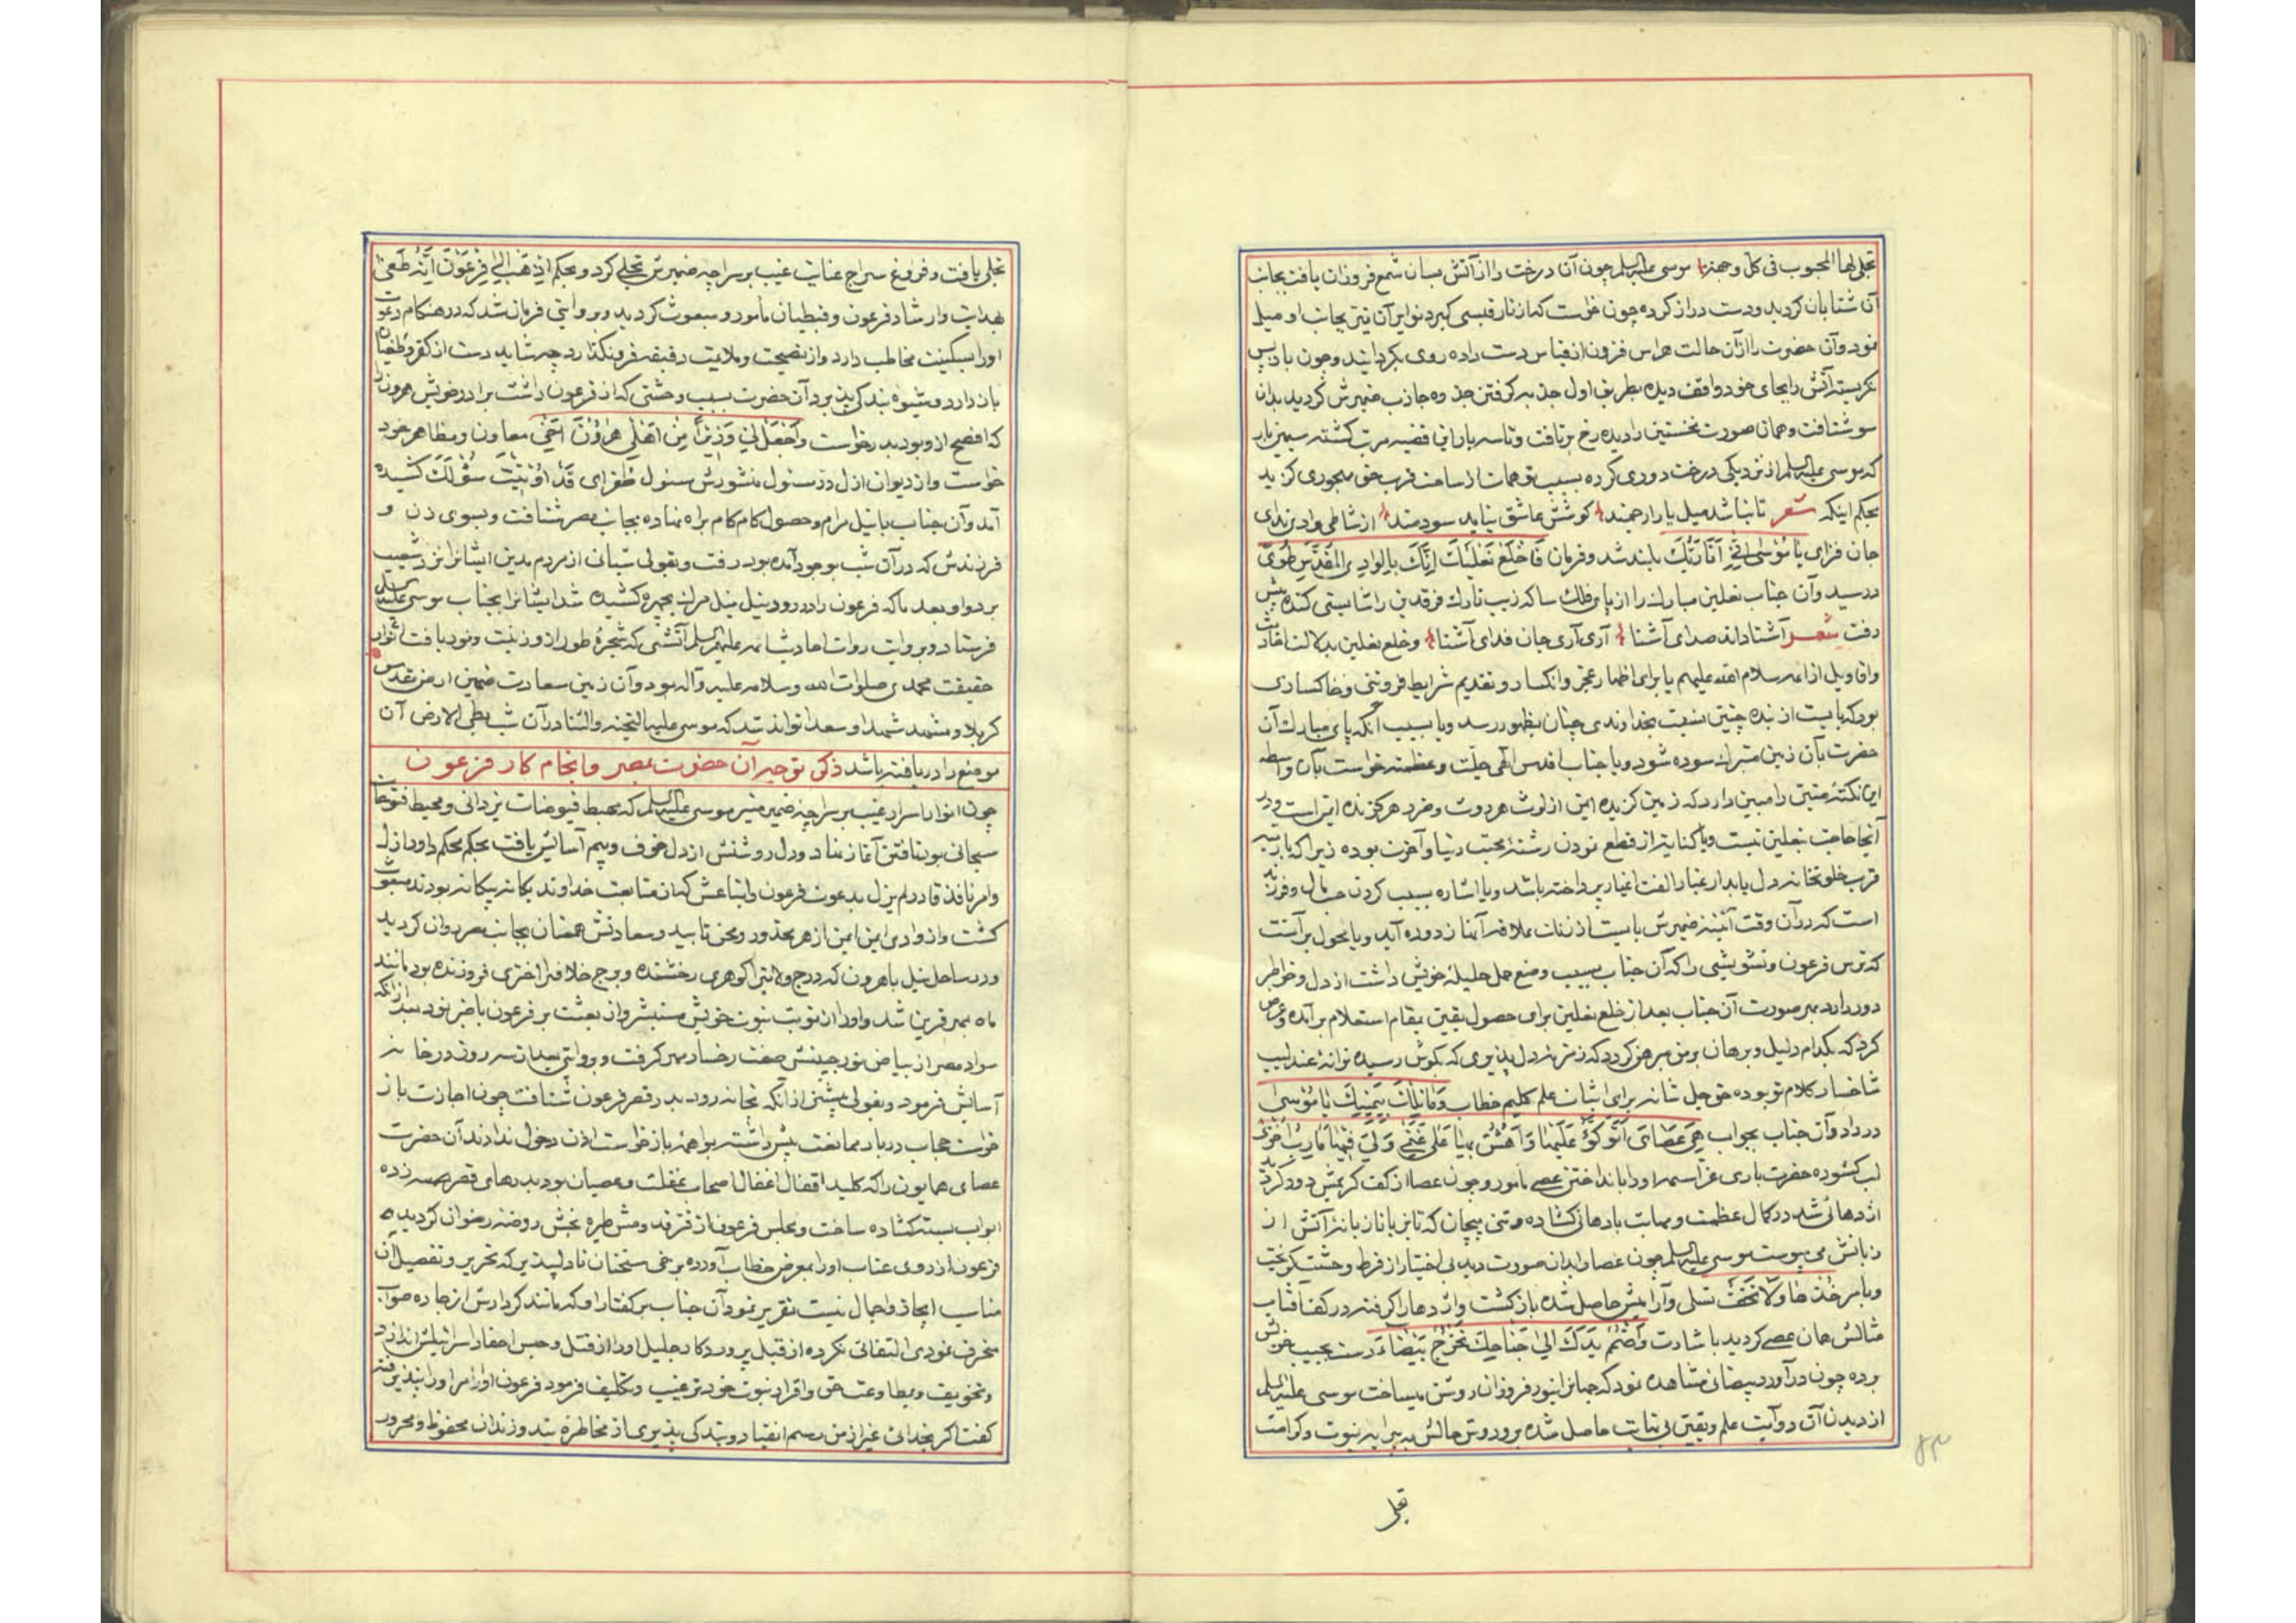 تجلی لها المحبوب فی کل وجهة موسی علیه السلم چون آن درخت را از آتش بسان شمع فروزان یافت بجانب
آن شتابان کردید و دست دراز کرده چون خواست که از نار قبسی کیرد نوایر آن نیز بجانب او میل
نمود و آن حضرت را از آن حالت هراس فزون از قیاس دست داده روی بکردانید و چون باز پس
نکریست آتش را بجای خود واقف دیده بطریق اول جذبه کرفتن جذوه جاذب ضمیرش کردید بدان
سو شتافت و همان صورت نخستین را دیده رخ برتافت و تا سه بار این قضیه مرتب کشته سیمین بار
که موسی علیه السلم از نزدیکی درخت دوری کرده بسبب توهمات از ساحت قرب حق مهجوری کزید
بحکم اینکه شعر تا نباشد میل یار ارجمند کوشش عاشق نیاید سودمند از شاطی وادی ندای
جان فزای یا موسی انی انا ربک بلند شد و فرمان فاخلع نعلیک انک بالوادی المقدس طوی
در رسید و آن جناب نعلین مبارک را از پای فلک سا که زیب تارک فرقدین را شایستی کنده پیش
رفت شعر آشنا داند صدای آشنا آری آری جان فدای آشنا و خلع نعلین بدلالت احادیث
و اقاویل از ائمه سلام الله علیهم یا برای اظهار عجز و انکسار و تقدیم شرایط فروتنی و خاکساری
بود که بایست از بنده چنین نسبت بخداوندی چنان بظهور رسد و یا بسبب آنکه پای مبارک آن
حضرت بآن زمین متبرک سوده شود و یا جناب اقدس الهی جلت و عظمته خواست بآن واسطه
این نکته متین را مبین دارد که زمین کزیده ایمن از لوث هر دوت و خرد هر کزنده این است و در
آنجا حاجت نعلین نیست و یا کنایت از قطع نمودن رشته محبت دنیا و آخرت بوده زیرا که باز سیر
قرب خلوتخانه دل باید از غبار الفت اغیار پرداخته باشد و یا اشاره بسبب کردن حب مال و فرزند
است که در آن وقت آئینه ضمیرش بایست از زنک علاقه آنها زدوده آید و یا محول بر آنست
که ترس فرعون و تشویشی را که آن جناب بسبب وضع حمل حلیله خویش داشت از دل و خواطر
دور دارد بهر صورت آن جناب بعد از خلع نعلین برای حصول یقین بمقام استعلام برآمده و عرض
کرد که بکدام دلیل و برهان بر من مبرهن کردد که زمزمه دل پذیری که بکوش رسیده ترانه عندلیب
شاخسار کلام تو بوده حق جل شانه برای اثبات علم کلیم خطاب و ما تلک بیمینک یا موسی
در داد و آن جناب بجواب هی عصای اتوکؤ علیها و اهش بها علی غنمی و لی فیها مارب اخری
لب کشوده حضرت باری عز اسمه او را بانداختن عصی مامور و چون عصا از کف کریمش دور کردید
اژدهائی شد در کمال عظمت و مهابت با دهانی کشاده و تنی پیچان که تابان تا زبانه آتش از
زبانش می پیوست موسی علیه السلم چون عصا را بدان صورت دید بی اختیار از فرط وحشت کریخت
و بامر خذها و لا تخف تسلی و آرامیش حاصل شده باز کشت و اژدها را کرفته در کف آفتاب
مثالش همان عصی کردید باشارت و اضمم یدک الی جناحک تخرج بیضاء دست بجیب خویش
برده چون در آورد بیضائی مشاهده نمود که جهانرا بنور فروزان روشن میساخت موسی علیه السلم
از دیدن آن دو آیت علم و یقین بی نهایت حاصل شده بر و دوش حالش به پیرایه نبوت و کرامت
تجلی
۸۳
تجلی یافت و فروغ سراج عنایت غیب بر سراچه ضمیرش تجلی کرد و بحکم اذهب الی فرعون انه طغی
بهدایت و ارشاد فرعون و قبطیان مامور و مبعوث کردید و بروایتی فرمان شد که در هنکام دعوت
او را بسکینت مخاطب دارد و از نصیحت و ملایمت دقیقه فرو نکذارد چه شاید دست از کفر و طغیان
باز دارد و شیوه بندکی پذیرد آن حضرت بسبب وحشتی که از فرعون داشت برادر خویش هرون را
که افصح از و بود بدرخواست و اجعل لی وزیرا من اهلی هرون اخی معاون و مظاهر خود
خواست و از دیوان ازل در مسئول منشورش مسئول طغرای قد اوتیت سؤلک کشیده
آمد و آن جناب با نیل مرام و حصول کام کام براه نهاده بجانب مصر شتافت و بسوی زن و
فرزندش که در آن شب بوجود آمده بود رفت و بقولی شبانی از مردم مدین ایشانرا نزد شعیب
برد و او بعد ما که فرعون را در رود نیل نیل مرک بچهره کشیده شد ایشانرا بجناب موسی علیه السلم
فرستاد و بروایت روات احادیث ائمه علیهم السلم آتشی که شجره طور از و زینت و نمود یافت انوار
حقیقت محمدی صلوات الله و سلامه علیه و آله بود و آن زمین سعادت ضمین ارض مقدس
کربلا و مشهد شهدا و سعدا تواند شد که موسی علیه التحیة و الثنا در آن شب بطی الارض آن
موضع را دریافته باشد ذکر توجه آن حضرت بمصر و انجام کار فرعون
چون انوار اسرار غیب بر سراچه ضمیر منیر موسی علیه السلم که مهبط فیوضات یزدانی و محیط فتوحات
سبحانی بود تافتن آغاز نهاد و دل روشنش از دل خوف و بیم آسایش یافت بحکم محکم داور ازل
و امر نافذ قادر لم یزل بدعوت فرعون و اتباعش که از متابعت خداوند یکانه بیکانه بودند مبعوث
کشت و از وادی ایمن ایمن از هر محذور و محن تایید و سعادتش همعنان بجانب مصر روان کردید
و در ساحل نیل با هرون که درج ولایترا کوهری رخشنده و برج خلافترا اختری فروزنده بود مانند
ماه بمهر قرین شد و او را از نوبت نبوت خویش مستبشر و از بعثت بر فرعون با خبر نمود بعد از آنکه
سواد مصر از بیاض نور جبینش صفت رخسار مهر کرفت و بروایتی بعد از سه روز در خانه
آسایش فرمود و بقولی پیش از آنکه بخانه رود بدر قصر فرعون شتافت چون اجازت باز
خواست حجاب دربار ممانعت پیش داشته بواهمه باز خواست اذن دخول ندادند آن حضرت
عصای همایون را که کلید اقفال اغفال اصحاب غفلت و عصیان بود بدرهای قصر همه زده
ابواب بسته کشاده ساخت و مجلس فرعون از فر قدومش طیره بخش روضه رضوان کردیده
فرعون از روی عتاب او را بمعرض خطاب آورده برخی سخنان نادلپذیر که تحریر و تفصیل آن
مناسب ایجاز و اجمال نیست تقریر نمود آن جناب بر کفتار او که مانند کردارش از جاده صواب
منحرف نمودی التفاتی نکرده از قبل پروردکار جلیل او را از قتل و حبس احفاد اسرائیلش انذار
و تخویف و بمطاوعت حق و اقرار نبوت خود ترغیب و تکلیف فرمود فرعون اوامر او را نپذیرفته
کفت اکر بخدائی غیر از من رسم انقیاد و بندکی پذیری از مخاطره بند و زندان محفوظ و محروس